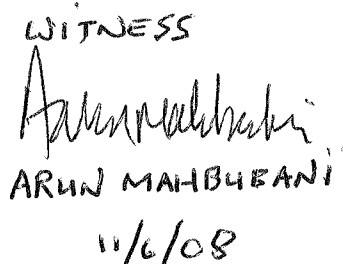 WITNESS
ARUN MAHBUBANI
11/6/08